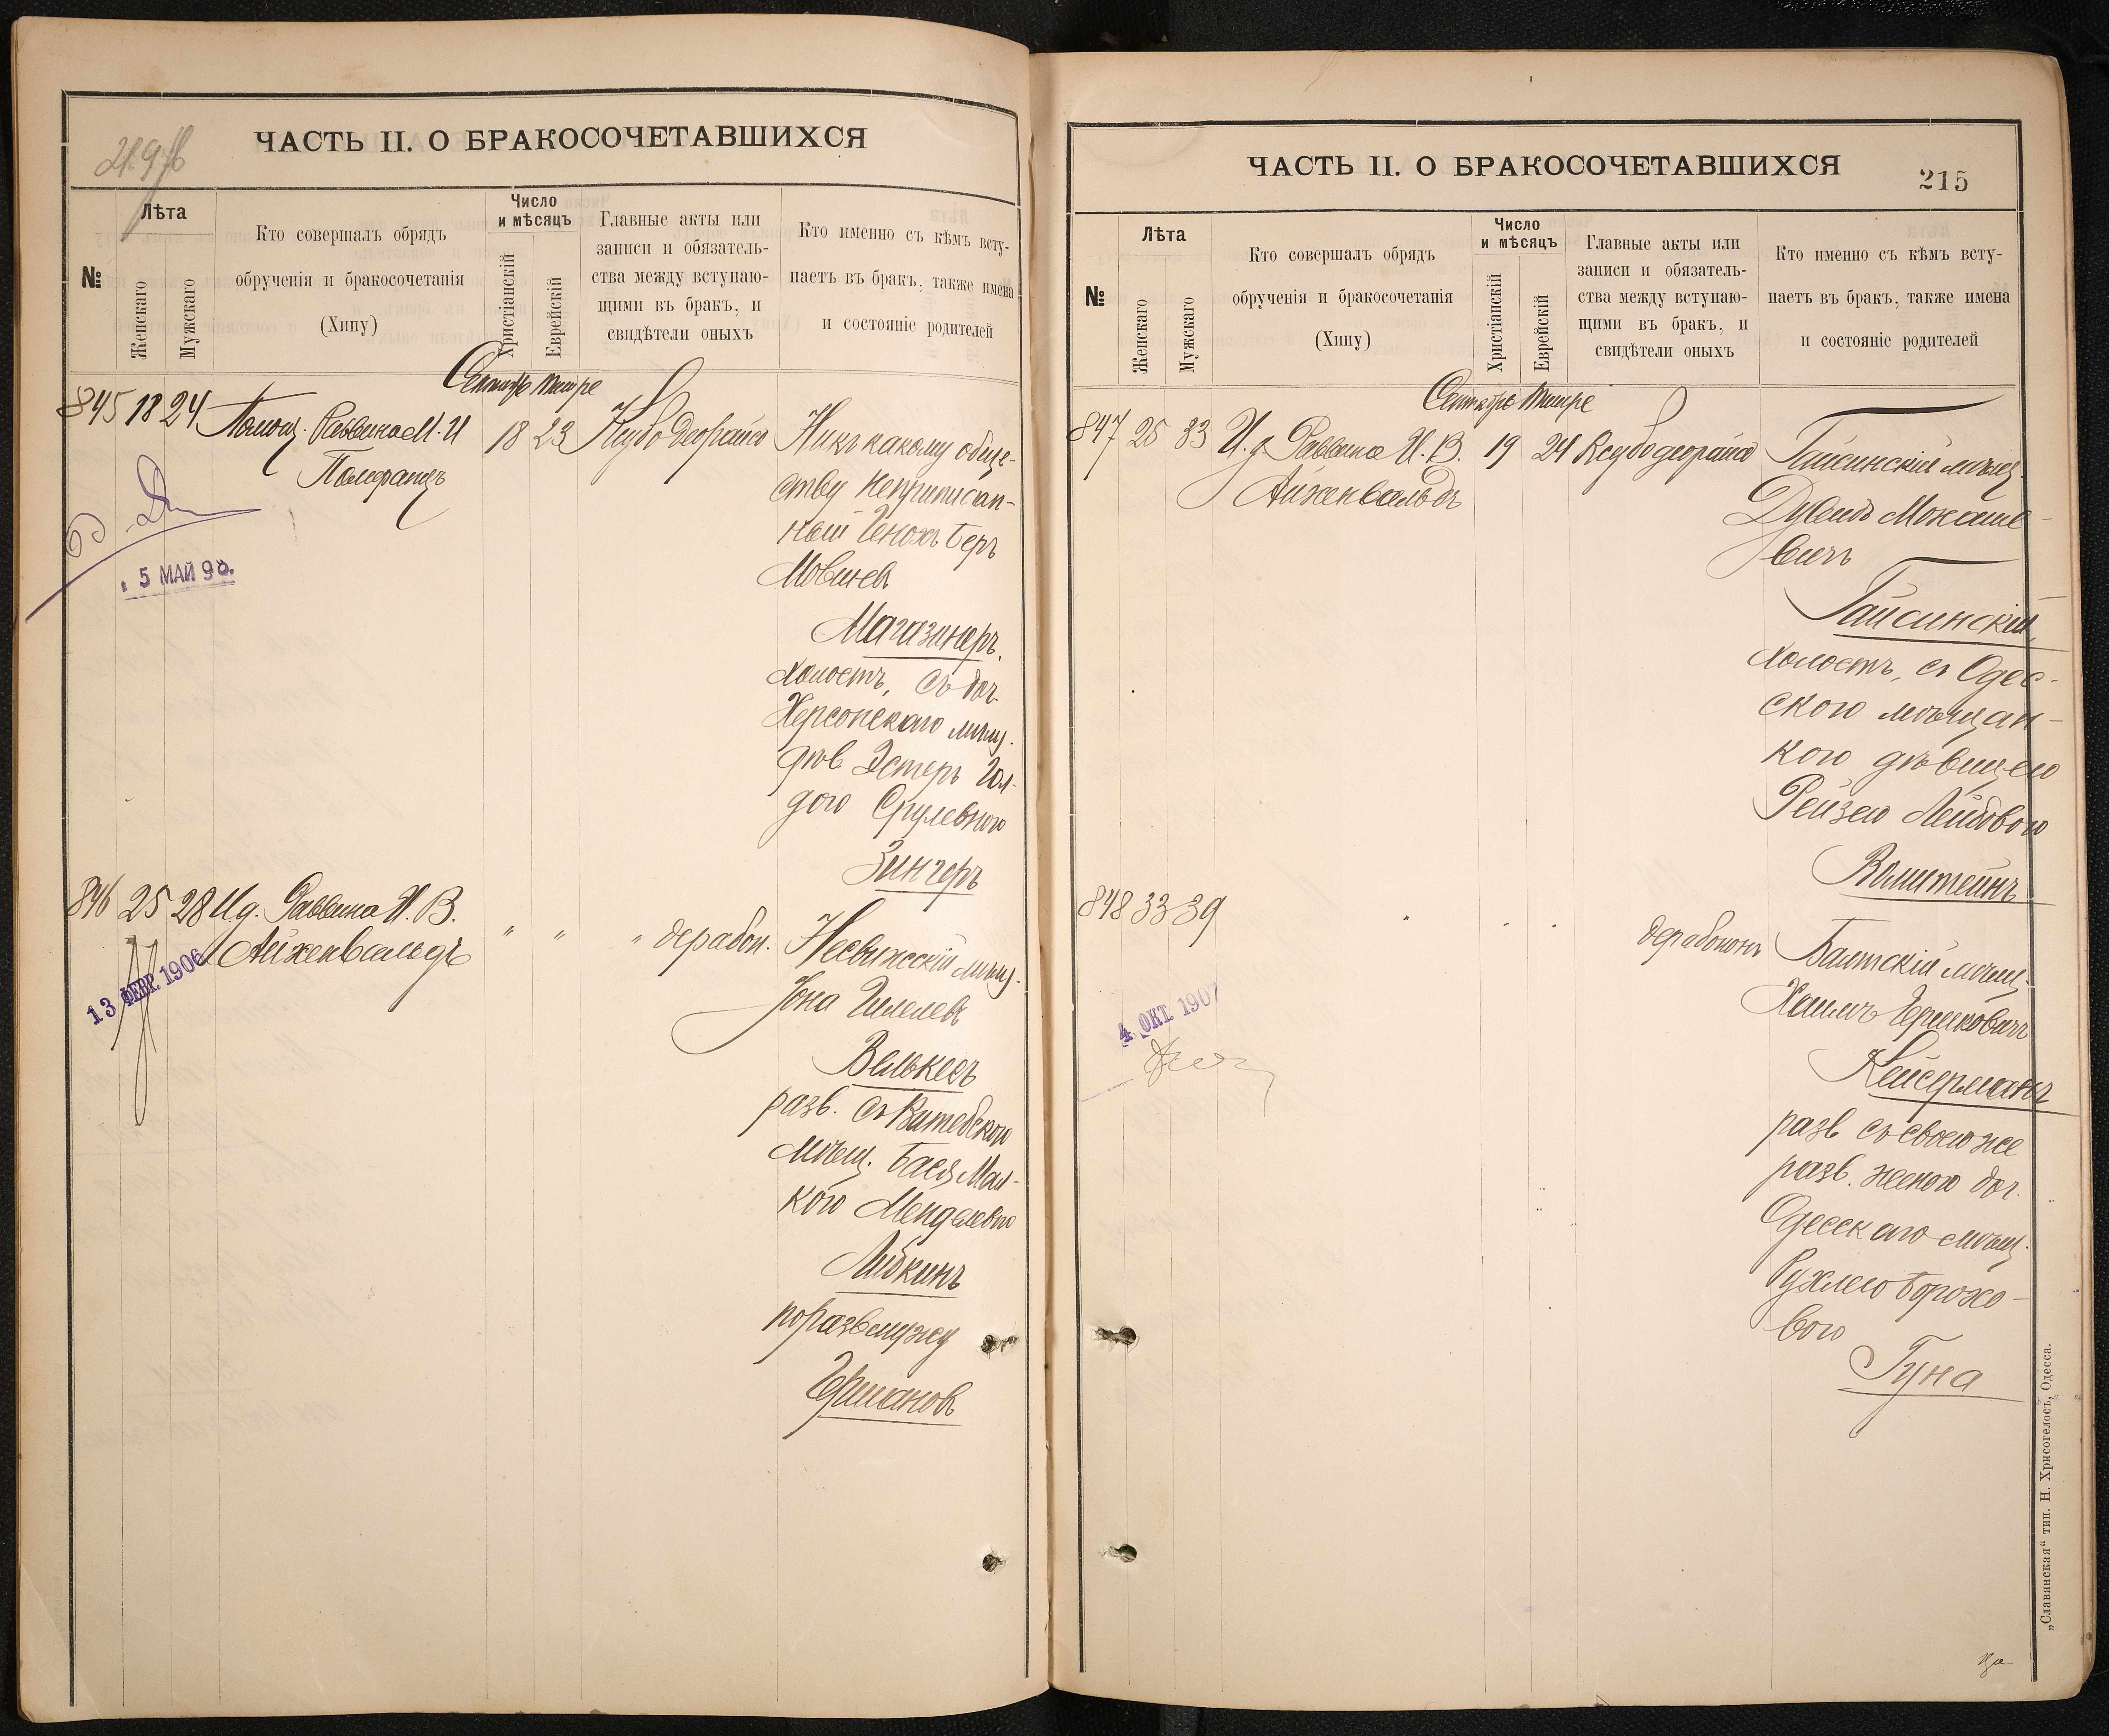 21.976
ЧАСТЬ II. О БРАКОСОЧЕТАВШИХСЯ
№
Лѣта
Женскаго
Мужскаго
Кто совершалъ обрядъ
обрученія и бракосочетанія
(Хипу)
Число
и мѣсяцъ
Христіанскій
Еврейскій
Главные акты или
записи и обязатель-
ства между вступаю-
щими въ бракъ, и
свидѣтели оныхъ
Кто именно съ кѣмъ всту-
паетъ въ бракъ, также имена
и состояніе родителей
Сентябр Тишре
845 18 24 Помощ. Раввина М. И
Полифанцъ
18 23 Ксубо деорайсо
Ни къ какому обще-
ству неприписан-
ный Генохъ Беръ
Мовшев
Магазинеръ,
холостъ, съ доч.
Херсонскаго мѣщ.
дѣв. Эстеръ Гол-
дою Срулевною
Зингеръ
5 МАЙ 98.
846 25 28 И.д. Раввина И. В.
Айхенвальдъ
" " " дерабон.
Несвижскій мѣщ.
Іона Гилелев
Велькесъ
разв. съ Витебскою
мѣщ. Бася Мал-
кою Менделевою
Либкинъ
по разв мужу
Гершанов
13 ФЕВР. 1906
ЧАСТЬ II. О БРАКОСОЧЕТАВШИХСЯ
215
№
Лѣта
Женскаго
Мужскаго
Кто совершалъ обрядъ
обрученія и бракосочетанія
(Хипу)
Число
и мѣсяцъ
Христіанскій
Еврейскій
Главные акты или
записи и обязатель-
ства между вступаю-
щими въ бракъ, и
свидѣтели оныхъ
Кто именно съ кѣмъ всту-
паетъ въ бракъ, также имена
и состояніе родителей
Сентябрь Тишре
847 25 33 И. д. Раввина И. В.
Айхенвальдъ
19 24 Ксубо деорайсо
Гайсинскій мѣщ.
Дувидъ Мокаше-
вичъ
Гайсинскій,
холостъ, съ Одес-
скою мѣщан-
кою дѣвицею
Рейзею Лейбовою
Вамштейнъ
848 33 39
" " " дерабононъ
Балтскій мѣщ.
Хаимъ Гершковичъ
Кейсерманъ
разв съ своею же
разв. женою доч.
Одесскаго мѣщ.
Рухлею Борохо-
вою
Гуна
4 ОКТ. 1907
„Славянская“ тип. Н. Хрисогелосъ, Одесса.